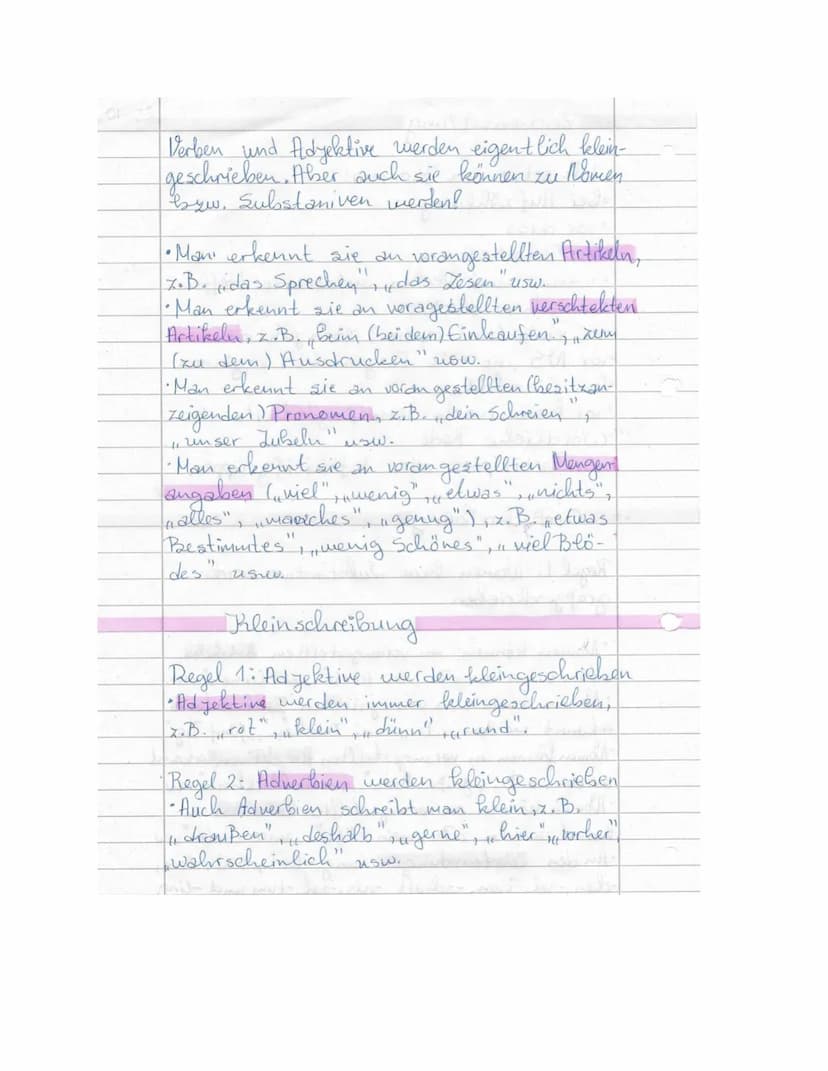 Verben und Adjektive werden eigentlich klein-
geschrieben. Aber auch sie können zu Nomen
bzw. Substaniven werden!
• Man erkennt sie an vorangestellten Artikeln,
z.B. „das Sprechen", „das Lesen" usw.
• Man erkennt sie an voragestellten verschtekten
Artikeln, z.B. „beim (bei dem) Einkaufen", „zum
(zu dem) Ausdrucken" usw.
• Man erkennt sie an vorangestellten (besitzan-
zeigenden) Pronomen, z.B. „dein Schreien",
„unser Jubeln" usw.
• Man erkennt sie an vorangestellten Mengen-
angaben („viel", „wenig", „etwas", „nichts",
„alles", „manches", „genug"), z.B. „etwas
Bestimmtes", „wenig Schönes", „viel Blö-
des" usw.
Kleinschreibung
Regel 1: Adjektive werden kleingeschrieben
• Adjektive werden immer kleingeschrieben,
z.B. „rot", „klein", „dünn", „rund".
Regel 2: Adverbien werden kleingeschrieben
• Auch Adverbien schreibt man klein, z.B.
„draußen", „deshalb", „gerne", „hier", „vorher",
„wahrscheinlich" usw.